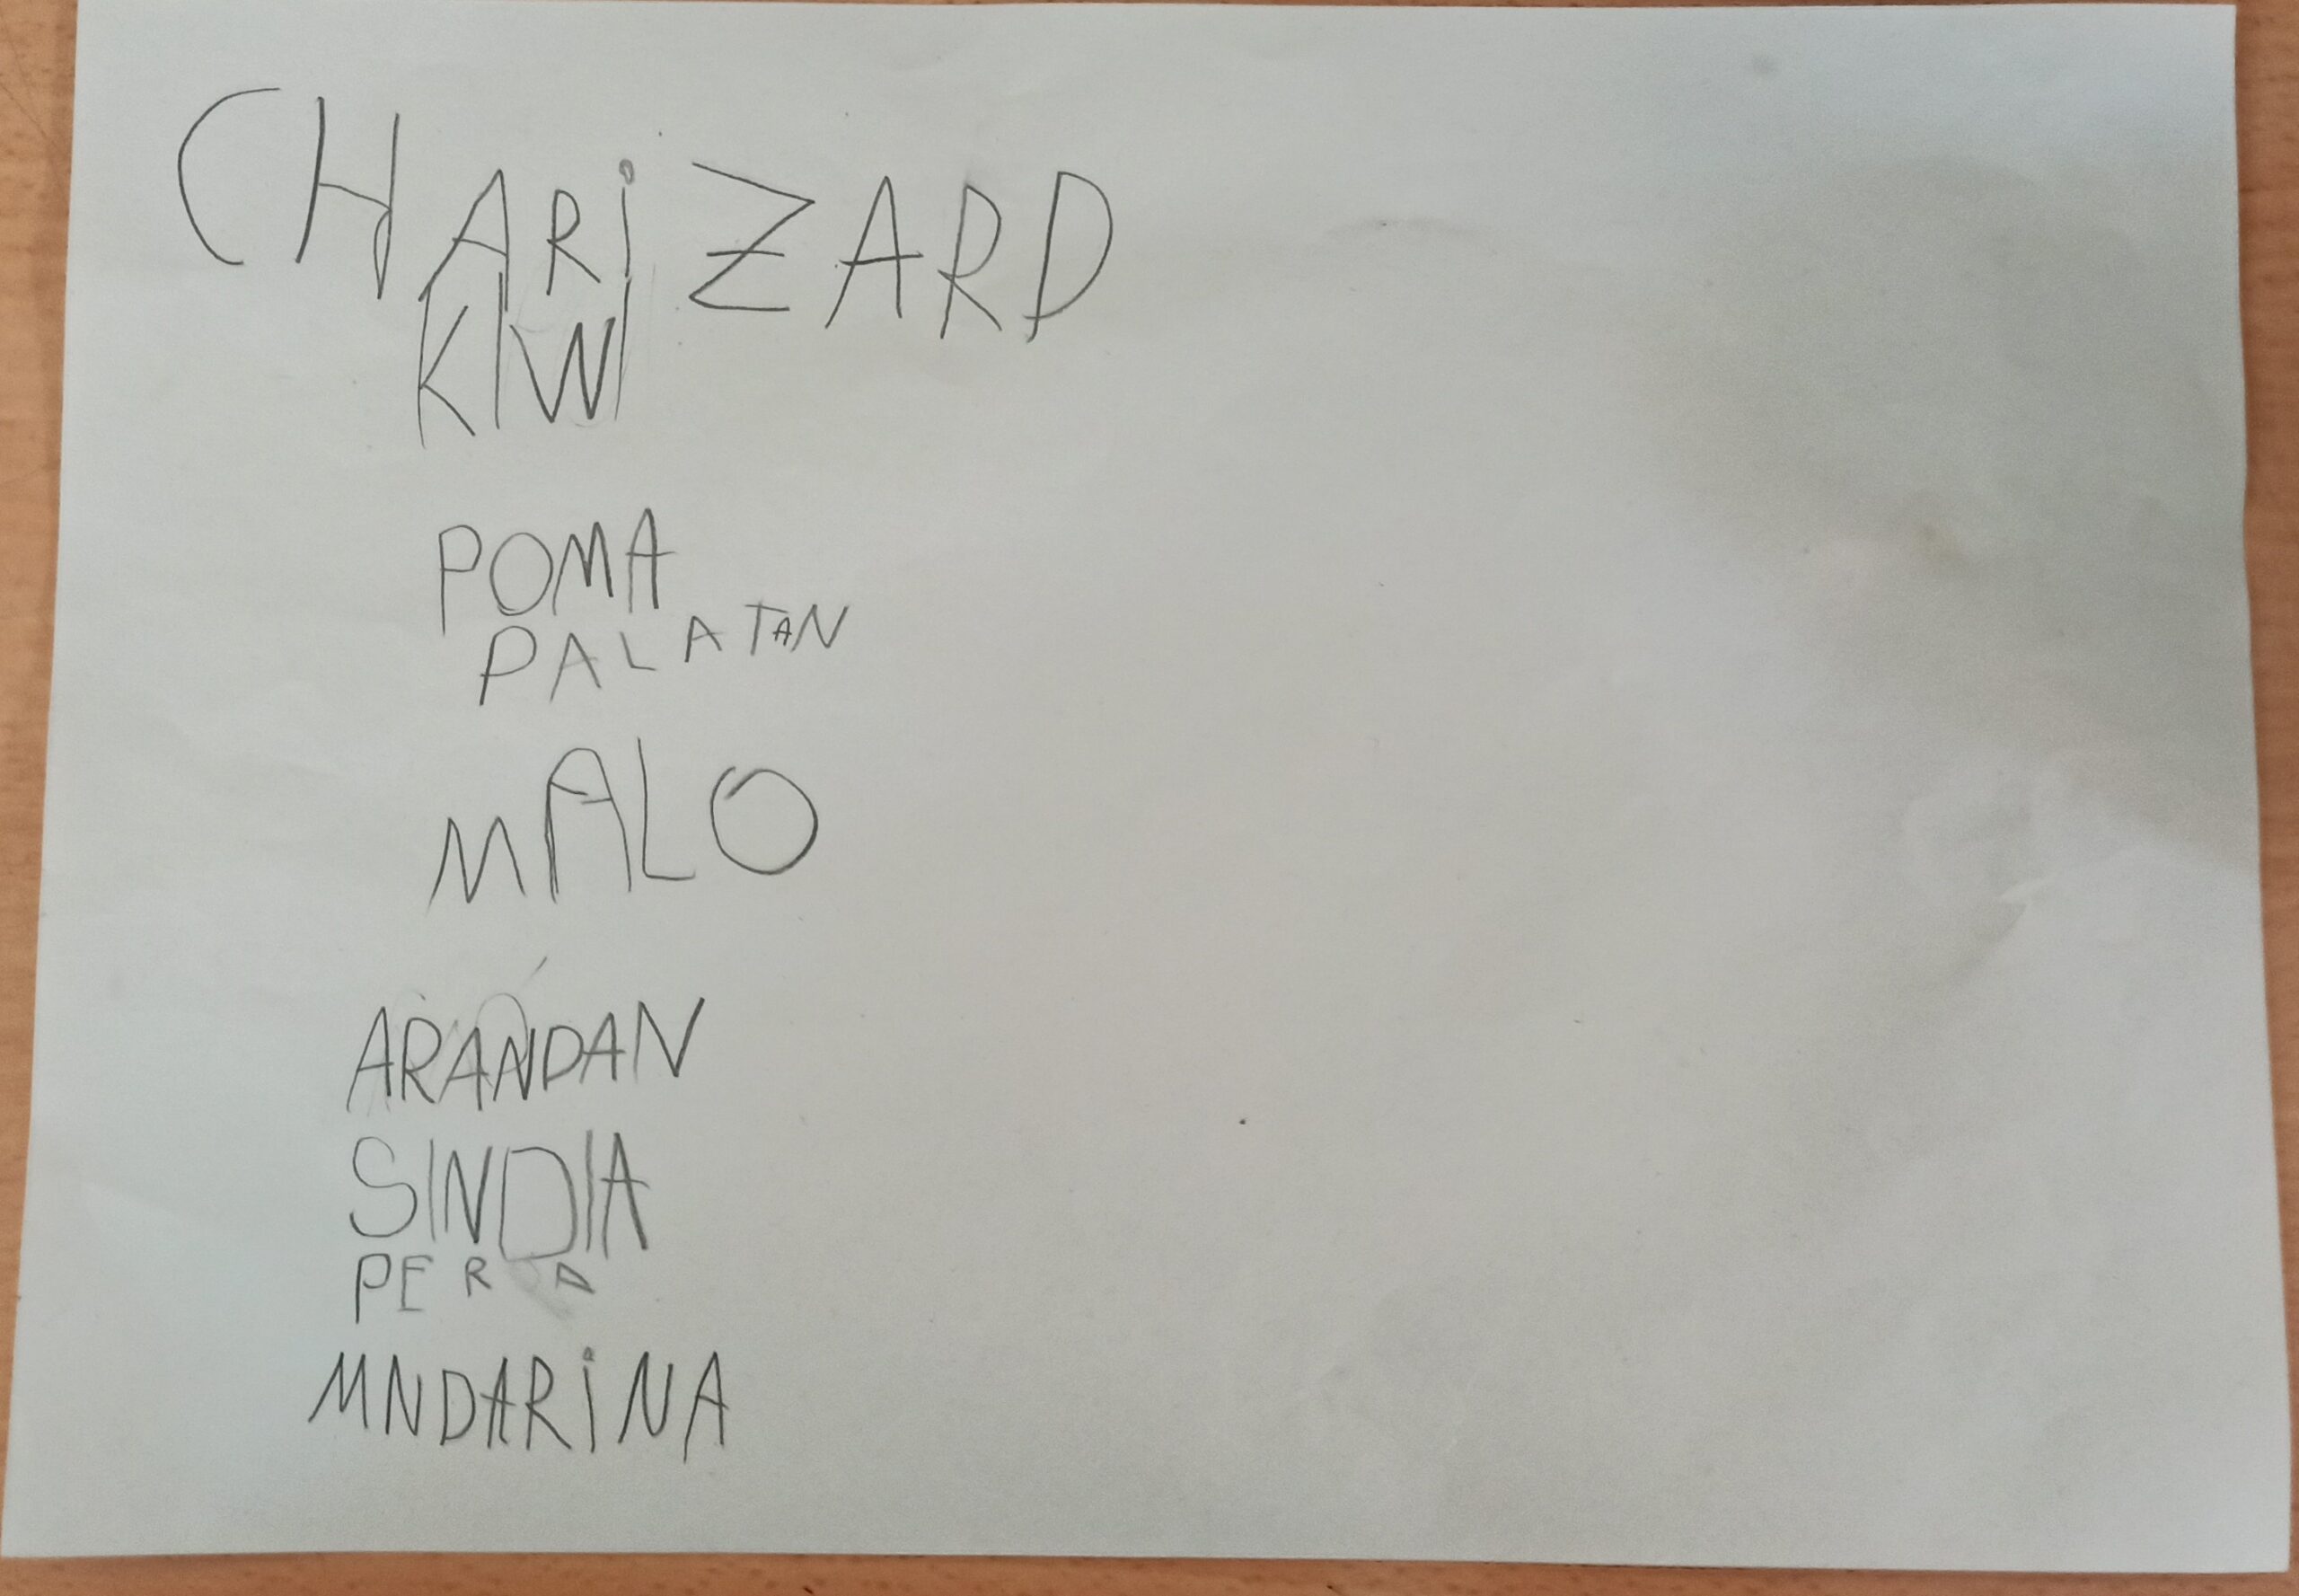 CHARiZARD
KIWI
POMA
PALATAN
MALO
ARANDAN
SINDIA
PERA
MNDARiNA